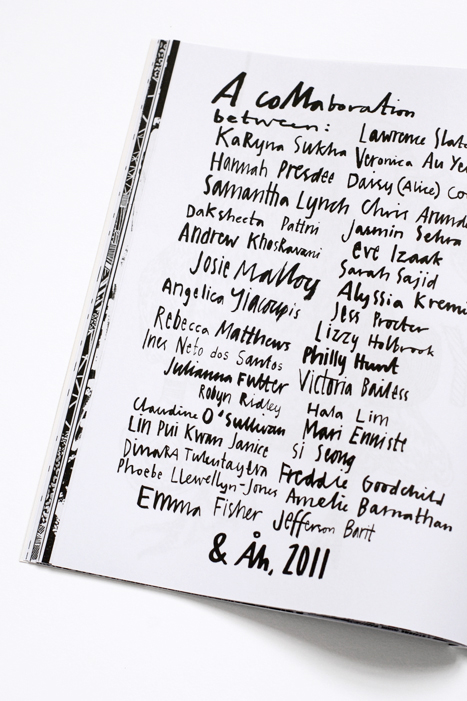 A collaboration
between: Lawrence
Karyna Sukha Veronica Au
Hannah Presdee Daisy (Alice)
Samantha Lynch Chris
Daksheeta Pattni Jasmin Sehra
Andrew Khosravani Eve Izaak
Josie Malloy Sarah Sajid
Angelica Yiacoupis Alyssia
Rebecca Matthews Jess Procter
Ines Neto dos Santos Lizzy Holbrook
Julianna Futter Philly Hunt
Robyn Ridley Victoria Bailess
Claudine O'Sullivan Hala Lim
Lin Pui Kwan Janice Mari Enniste
Dinara si Seong
Phoebe Llewellyn-Jones Freddie Goodchild
Emma Fisher Amelie Barnathan
Jefferson Barit
& Åh, 2011